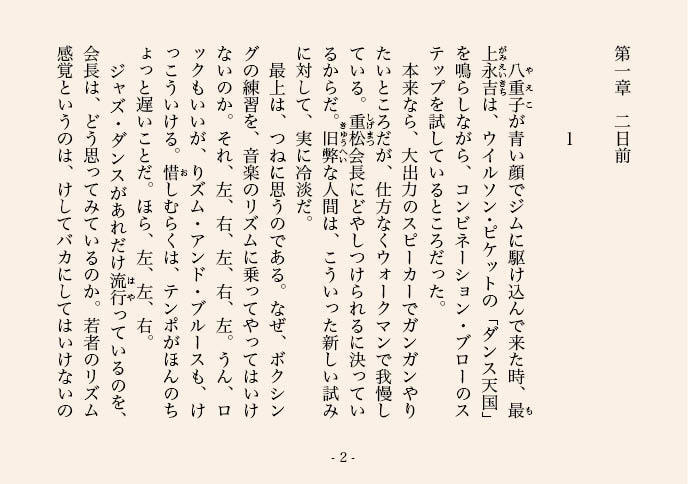 第一章　二日前
1
　八重子が青い顔でジムに駆け込んで来た時、最
上永吉は、ウイルソン・ピケットの「ダンス天国」
を鳴らしながら、コンビネーション・ブローのス
テップを試しているところだった。
　本来なら、大出力のスピーカーでガンガンやり
たいところだが、仕方なくウォークマンで我慢し
ている。重松会長にどやしつけられるに決ってい
るからだ。旧弊な人間は、こういった新しい試み
に対して、実に冷淡だ。
　最上は、つねに思うのである。なぜ、ボクシン
グの練習を、音楽のリズムに乗ってやってはいけ
ないのか。それ、左、右、左、右、左。うん、ロ
ックもいいが、りズム・アンド・ブルースも、け
っこういける。惜しむらくは、テンポがほんのち
ょっと遅いことだ。ほら、左、左、右。
　ジャズ・ダンスがあれだけ流行っているのを、
会長は、どう思ってみているのか。若者のリズム
感覚というのは、けしてバカにしてはいけないの
- 2 -